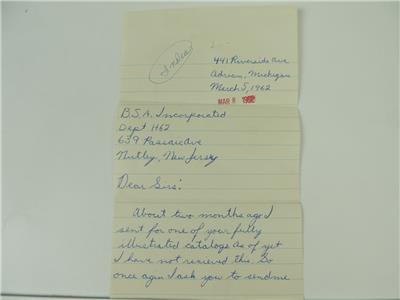 Indian
441 Riverside Ave
Adrian, Michigan
March 5, 1962
MAR 8 1962
B.S.A. Incorporated
Dept H62
639 Passaic Ave
Nutley, New Jersey
Dear Sirs:
About two months ago I
sent for one of your fully
illustrated catalogs as of yet
I have not recieved this. So
once agen I ask you to send me